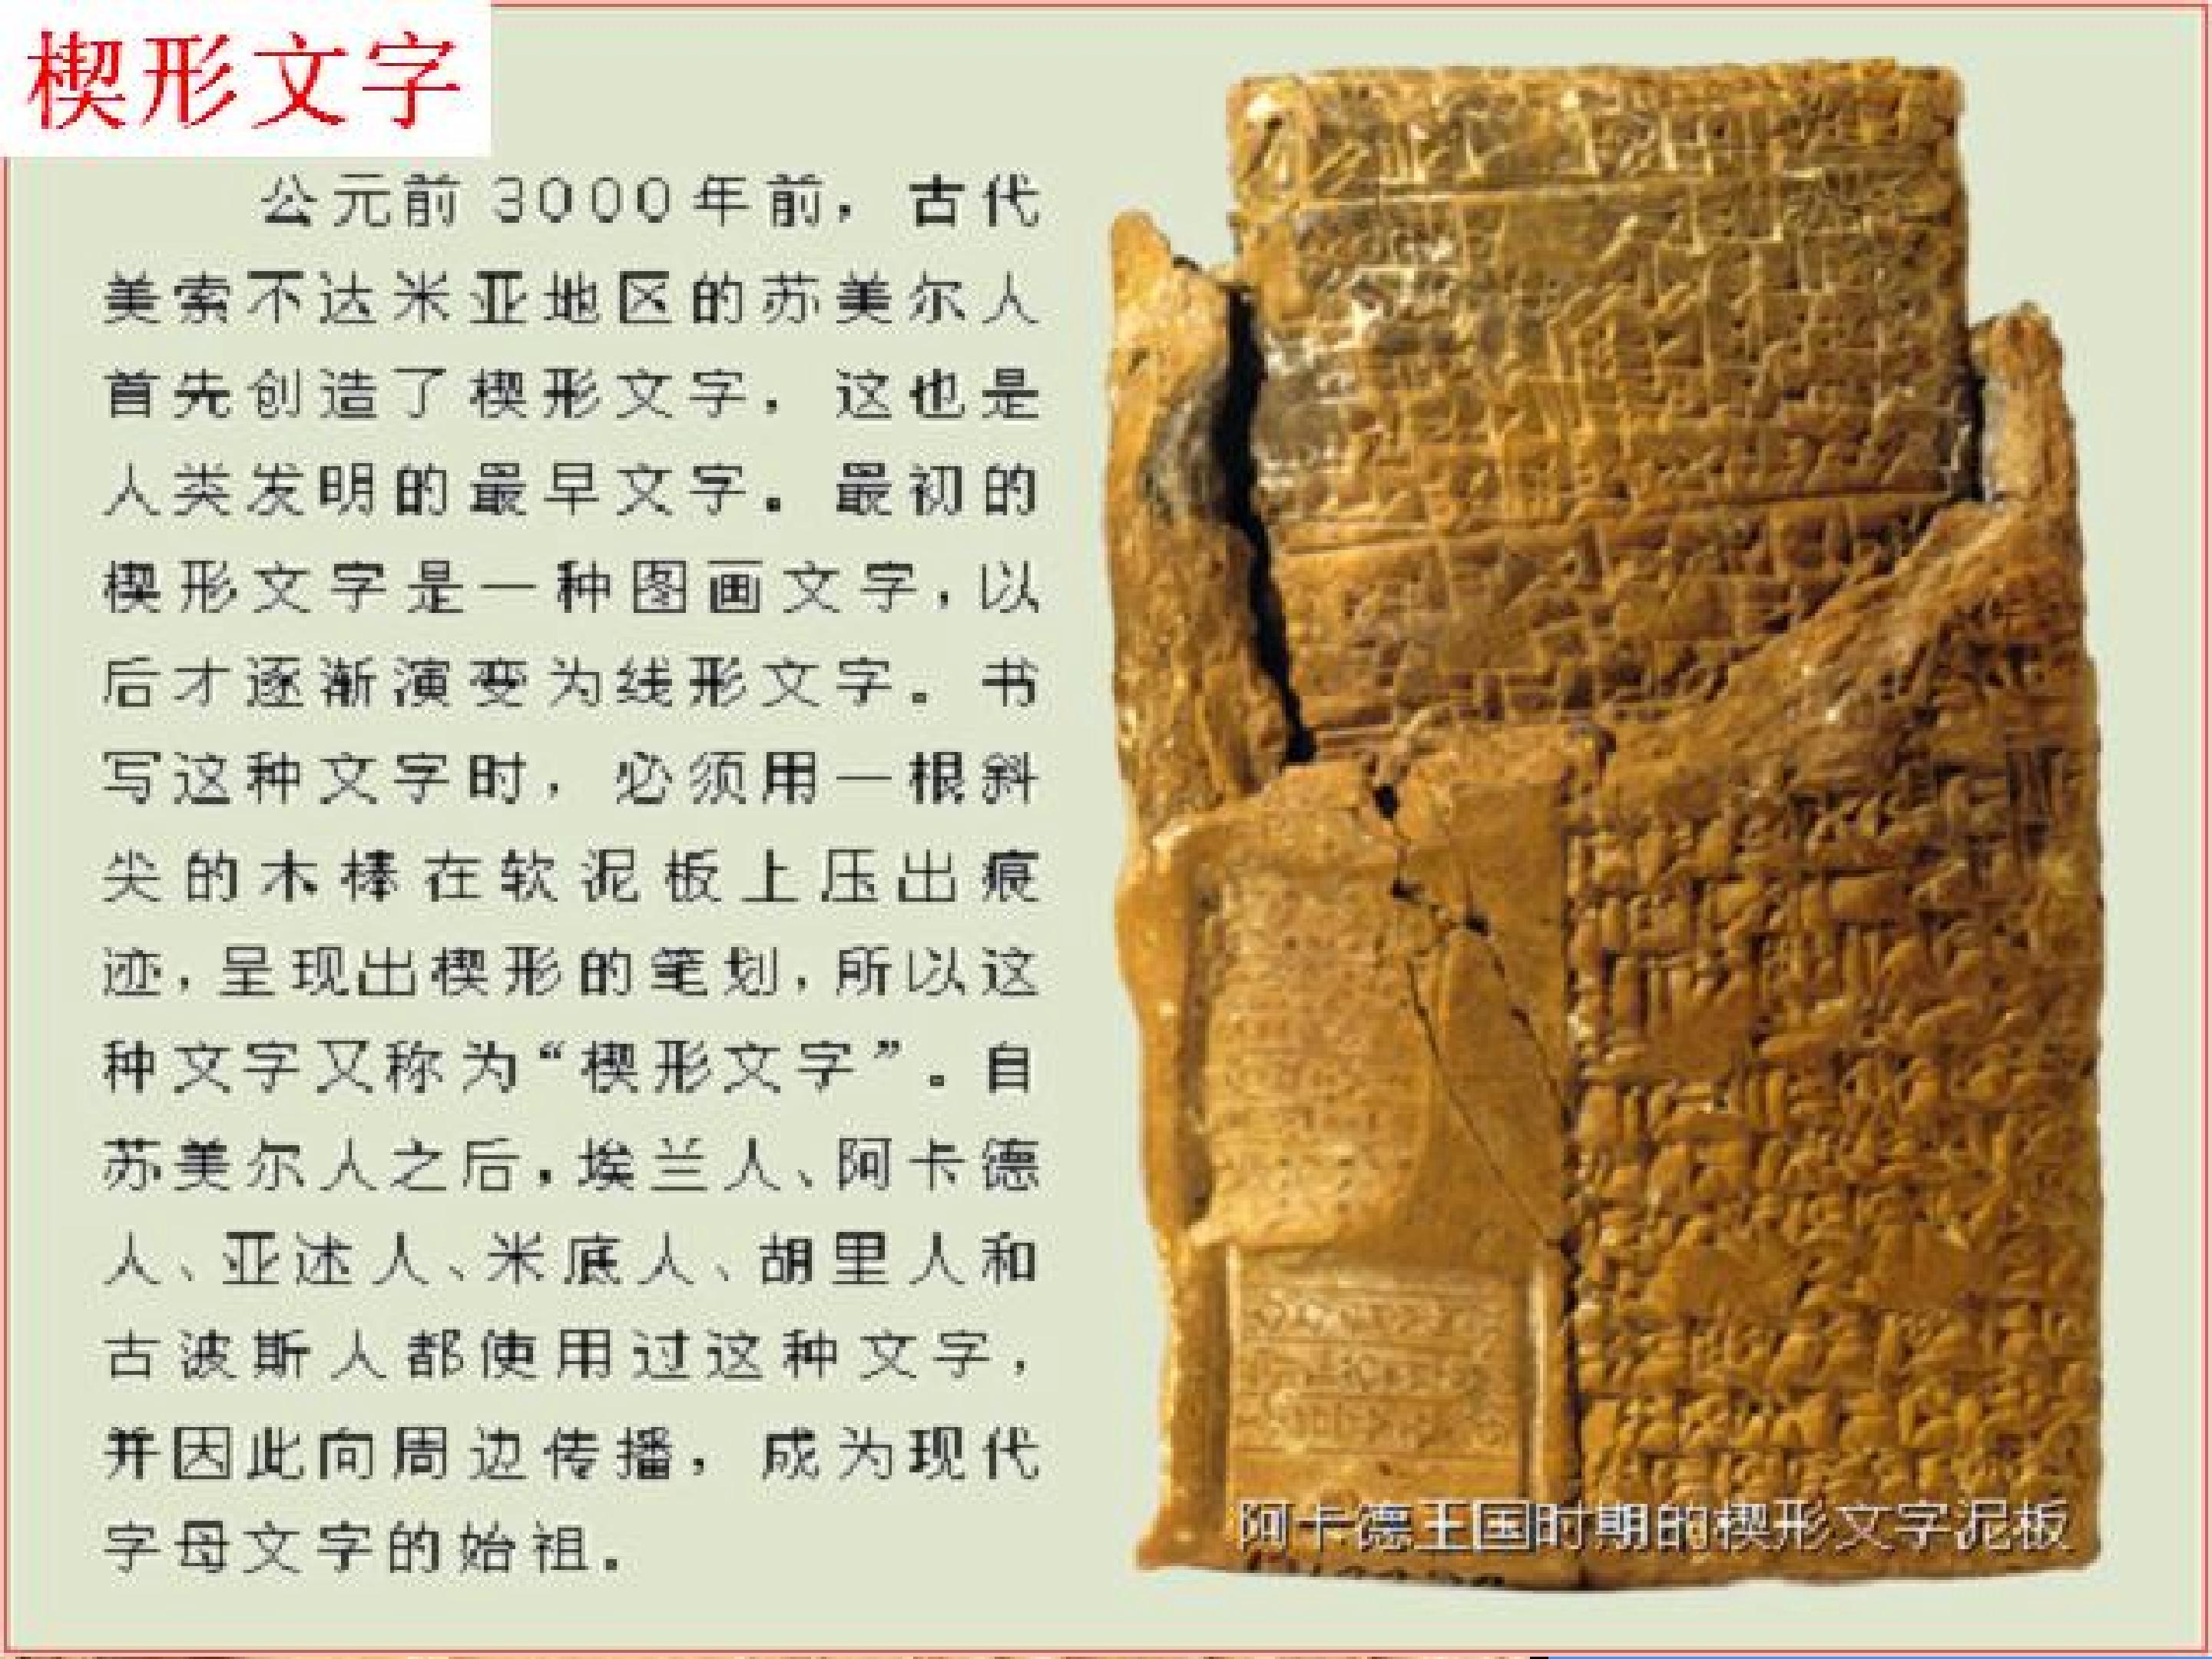 楔形文字
公元前3000年前，古代
美索不达米亚地区的苏美尔人
首先创造了楔形文字，这也是
人类发明的最早文字。最初的
楔形文字是一种图画文字，以
后才逐渐演变为线形文字。书
写这种文字时，必须用一根斜
尖的木棒在软泥板上压出痕
迹，呈现出楔形的笔划，所以这
种文字又称为“楔形文字”。自
苏美尔人之后，埃兰人、阿卡德
人、亚述人、米底人、胡里人和
古波斯人都使用过这种文字，
并因此向周边传播，成为现代
字母文字的始祖。
阿卡德王国时期的楔形文字泥板